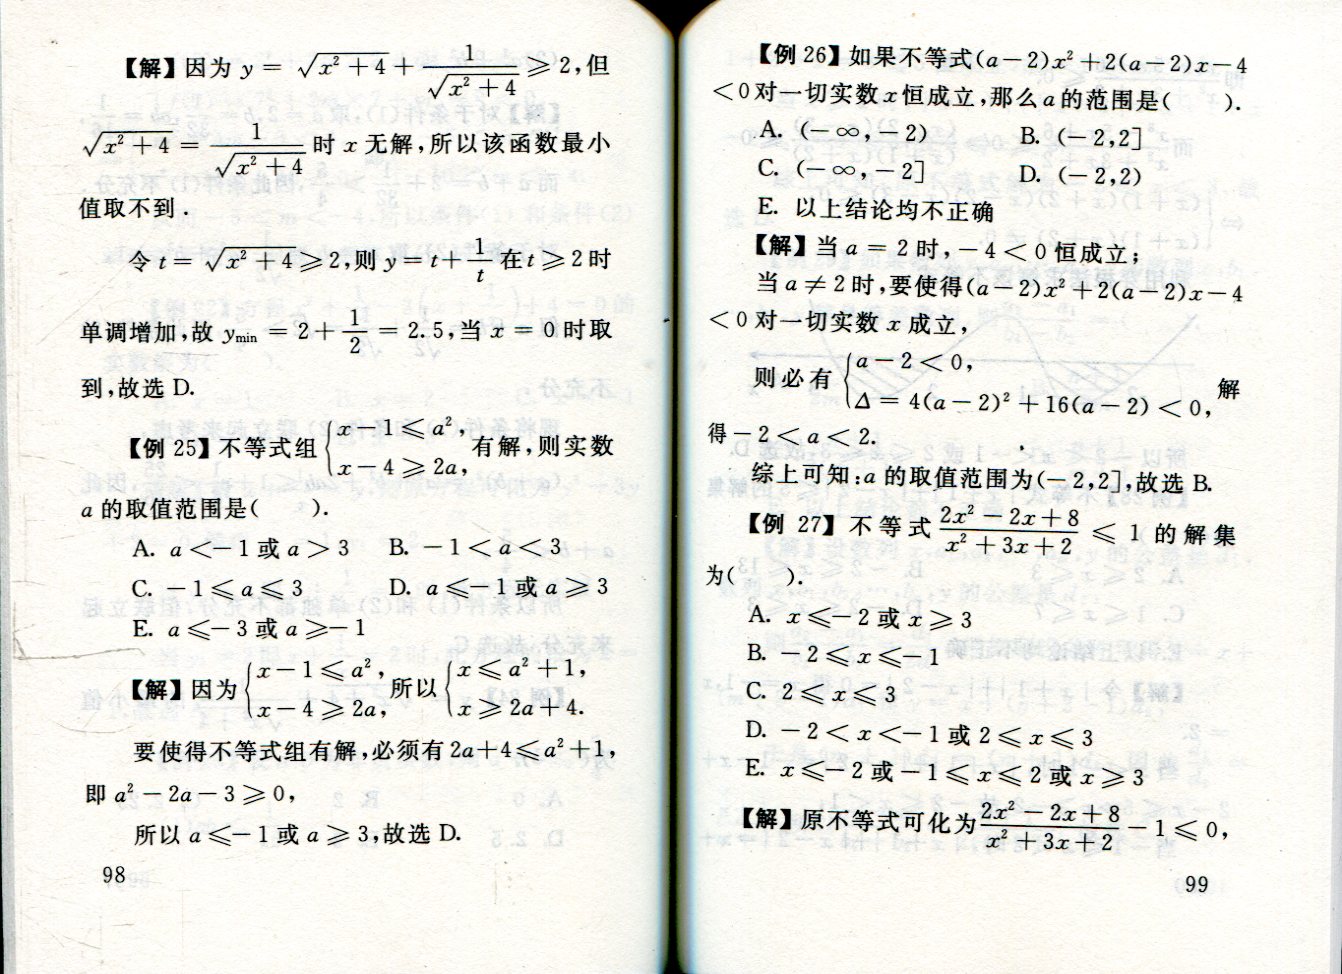 【解】因为 y = √(x²+4) + 1/√(x²+4) ≥ 2,但
√(x²+4) = 1/√(x²+4) 时 x 无解,所以该函数最小
值取不到.
令 t = √(x²+4) ≥ 2,则 y = t + 1/t 在 t ≥ 2 时
单调增加,故 y_min = 2 + 1/2 = 2.5,当 x = 0 时取
到,故选 D.
【例 25】不等式组 { x − 1 ≤ a², x − 4 ≥ 2a, 有解,则实数
a 的取值范围是( ).
A. a < −1 或 a > 3 B. −1 < a < 3
C. −1 ≤ a ≤ 3 D. a ≤ −1 或 a ≥ 3
E. a ≤ −3 或 a ≥ −1
【解】因为 { x − 1 ≤ a², x − 4 ≥ 2a, 所以 { x ≤ a² + 1, x ≥ 2a + 4.
要使得不等式组有解,必须有 2a+4 ≤ a²+1,
即 a² − 2a − 3 ≥ 0,
所以 a ≤ −1 或 a ≥ 3,故选 D.
98
【例 26】如果不等式(a−2)x²+2(a−2)x−4
<0对一切实数 x 恒成立,那么 a 的范围是( ).
A. (−∞,−2) B. (−2,2]
C. (−∞,−2] D. (−2,2)
E. 以上结论均不正确
【解】当 a = 2 时,−4 < 0 恒成立;
当 a ≠ 2 时,要使得(a−2)x²+2(a−2)x−4
<0 对一切实数 x 成立,
则必有 { a − 2 < 0, Δ = 4(a − 2)² + 16(a − 2) < 0, 解
得 −2 < a < 2.
综上可知:a 的取值范围为(−2,2],故选 B.
【例 27】不等式 (2x² − 2x + 8)/(x² + 3x + 2) ≤ 1 的解集
为( ).
A. x ≤ −2 或 x ≥ 3
B. −2 ≤ x ≤ −1
C. 2 ≤ x ≤ 3
D. −2 < x < −1 或 2 ≤ x ≤ 3
E. x ≤ −2 或 −1 ≤ x ≤ 2 或 x ≥ 3
【解】原不等式可化为 (2x² − 2x + 8)/(x² + 3x + 2) − 1 ≤ 0,
99